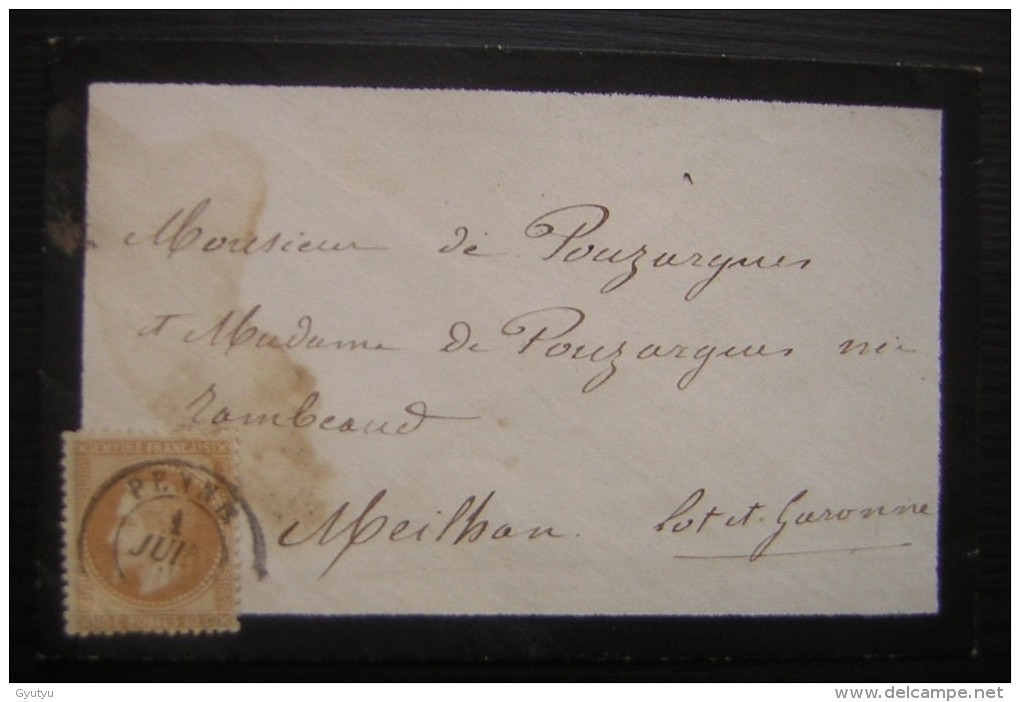 Monsieur de Pouzargues
et Madame de Pouzargues née
Rambeaud
Meilhan. Lot et Garonne
EMPIRE FRANÇAIS
PENNE
1
JUIN
Gyutyu
www.delcampe.net